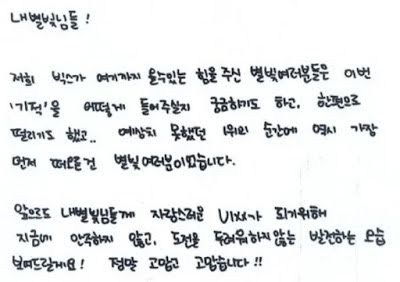 내별빛님들!
저희 빅스가 여기까지 올수있는 힘을 주신 별빛여러분들은 이번
'기적'을 어떻게 들어주실지 궁금하기도 하고, 한편으로
떨리기도 했고.. 예상치 못했던 1위의 순간에 역시 가장
먼저 떠오른건 별빛여러분이었습니다.
앞으로도 내별빛님들께 자랑스러운 VIXX가 되기위해
지금에 안주하지 않고, 도전을 두려워하지않는 발전하는 모습
보여드릴게요! 정말 고맙고 고맙습니다!!